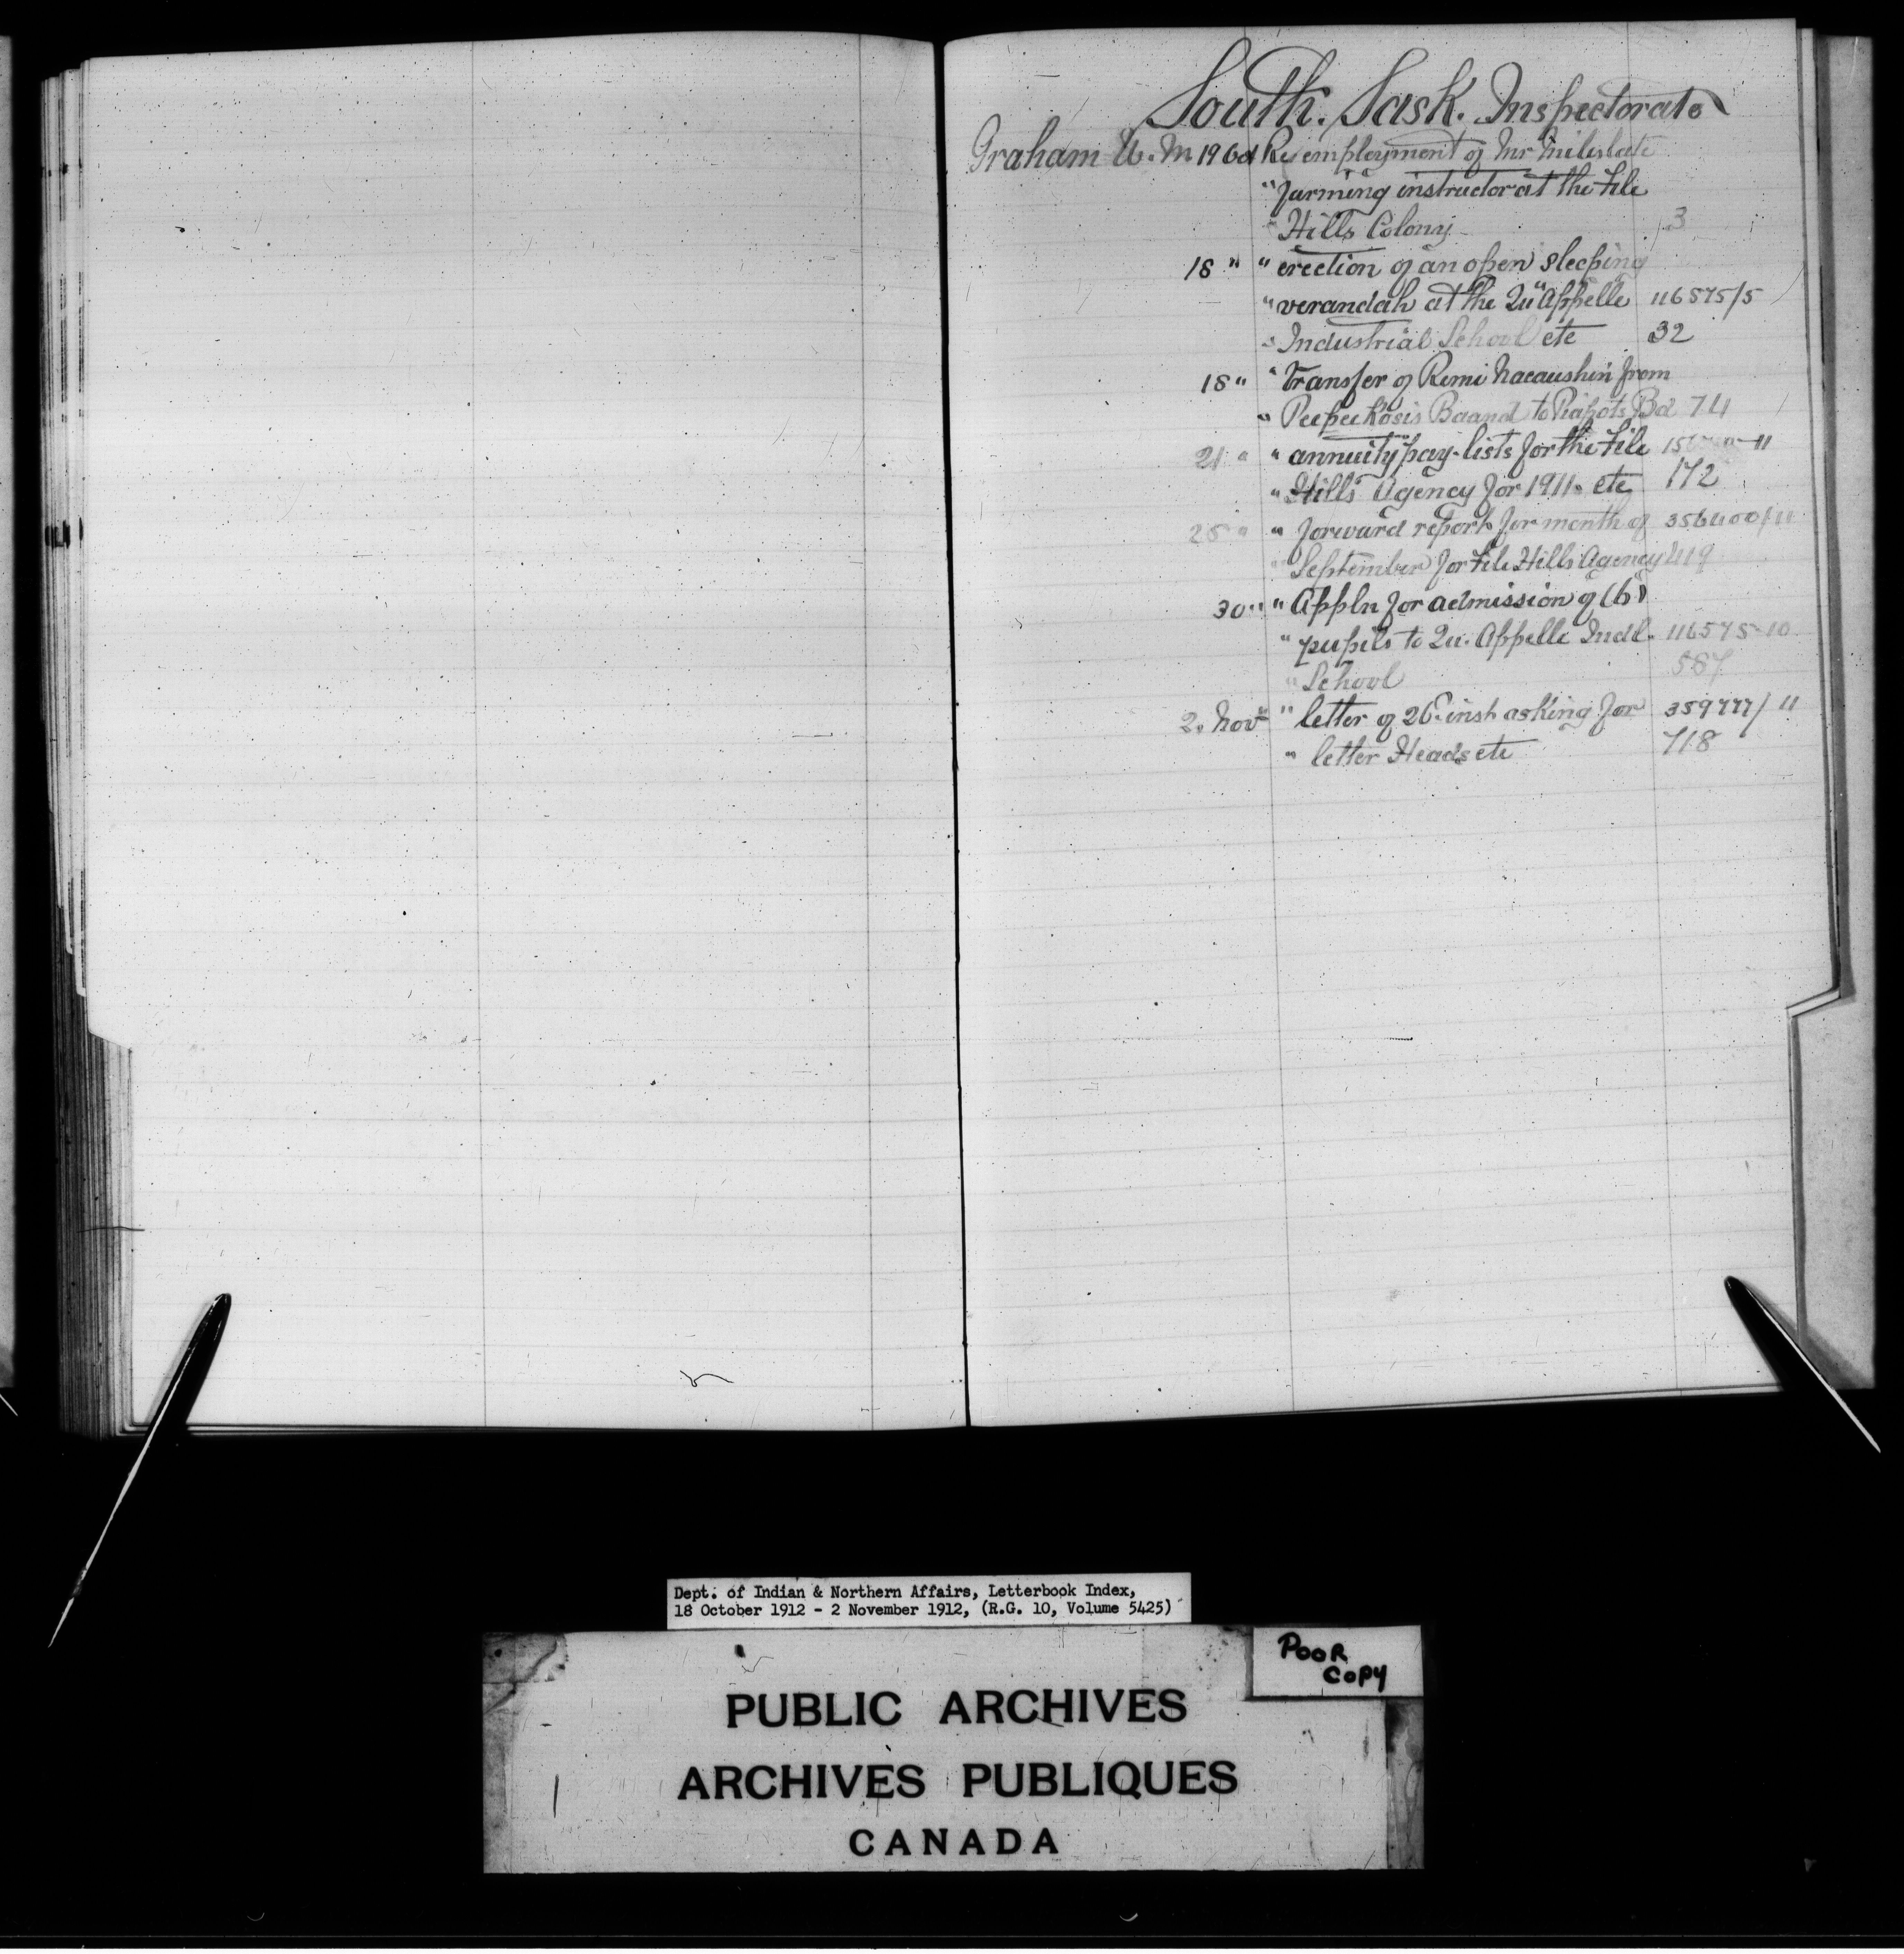 South. Sask. Inspectorate
Graham W. M 19 Oct Re employment of Mr Miles late
" farming instructor at the File
" Hills Colony 3
18 " " erection of an open sleeping
" verandah at the Qu'Appelle 116575/5
" Industrial School etc 32
18 " " transfer of Remi from
" Peepeekosis Baand to Piapots Bd 74
21 " " annuity pay-lists for the File
" Hills Agency for 1911. etc 172
25 " " forward report for month of 356400/11
" September for File Hills Agency 419
30 " " Appln for admission of (6)
" pupils to Qu. Appelle Indl. 116575-10
" School 587
2. Nov " letter of 26 inst asking for 359777/11
" letter Heads etc 718
Dept. of Indian & Northern Affairs, Letterbook Index,
18 October 1912 - 2 November 1912, (R.G. 10, Volume 5425)
POOR
COPY
PUBLIC ARCHIVES
ARCHIVES PUBLIQUES
CANADA